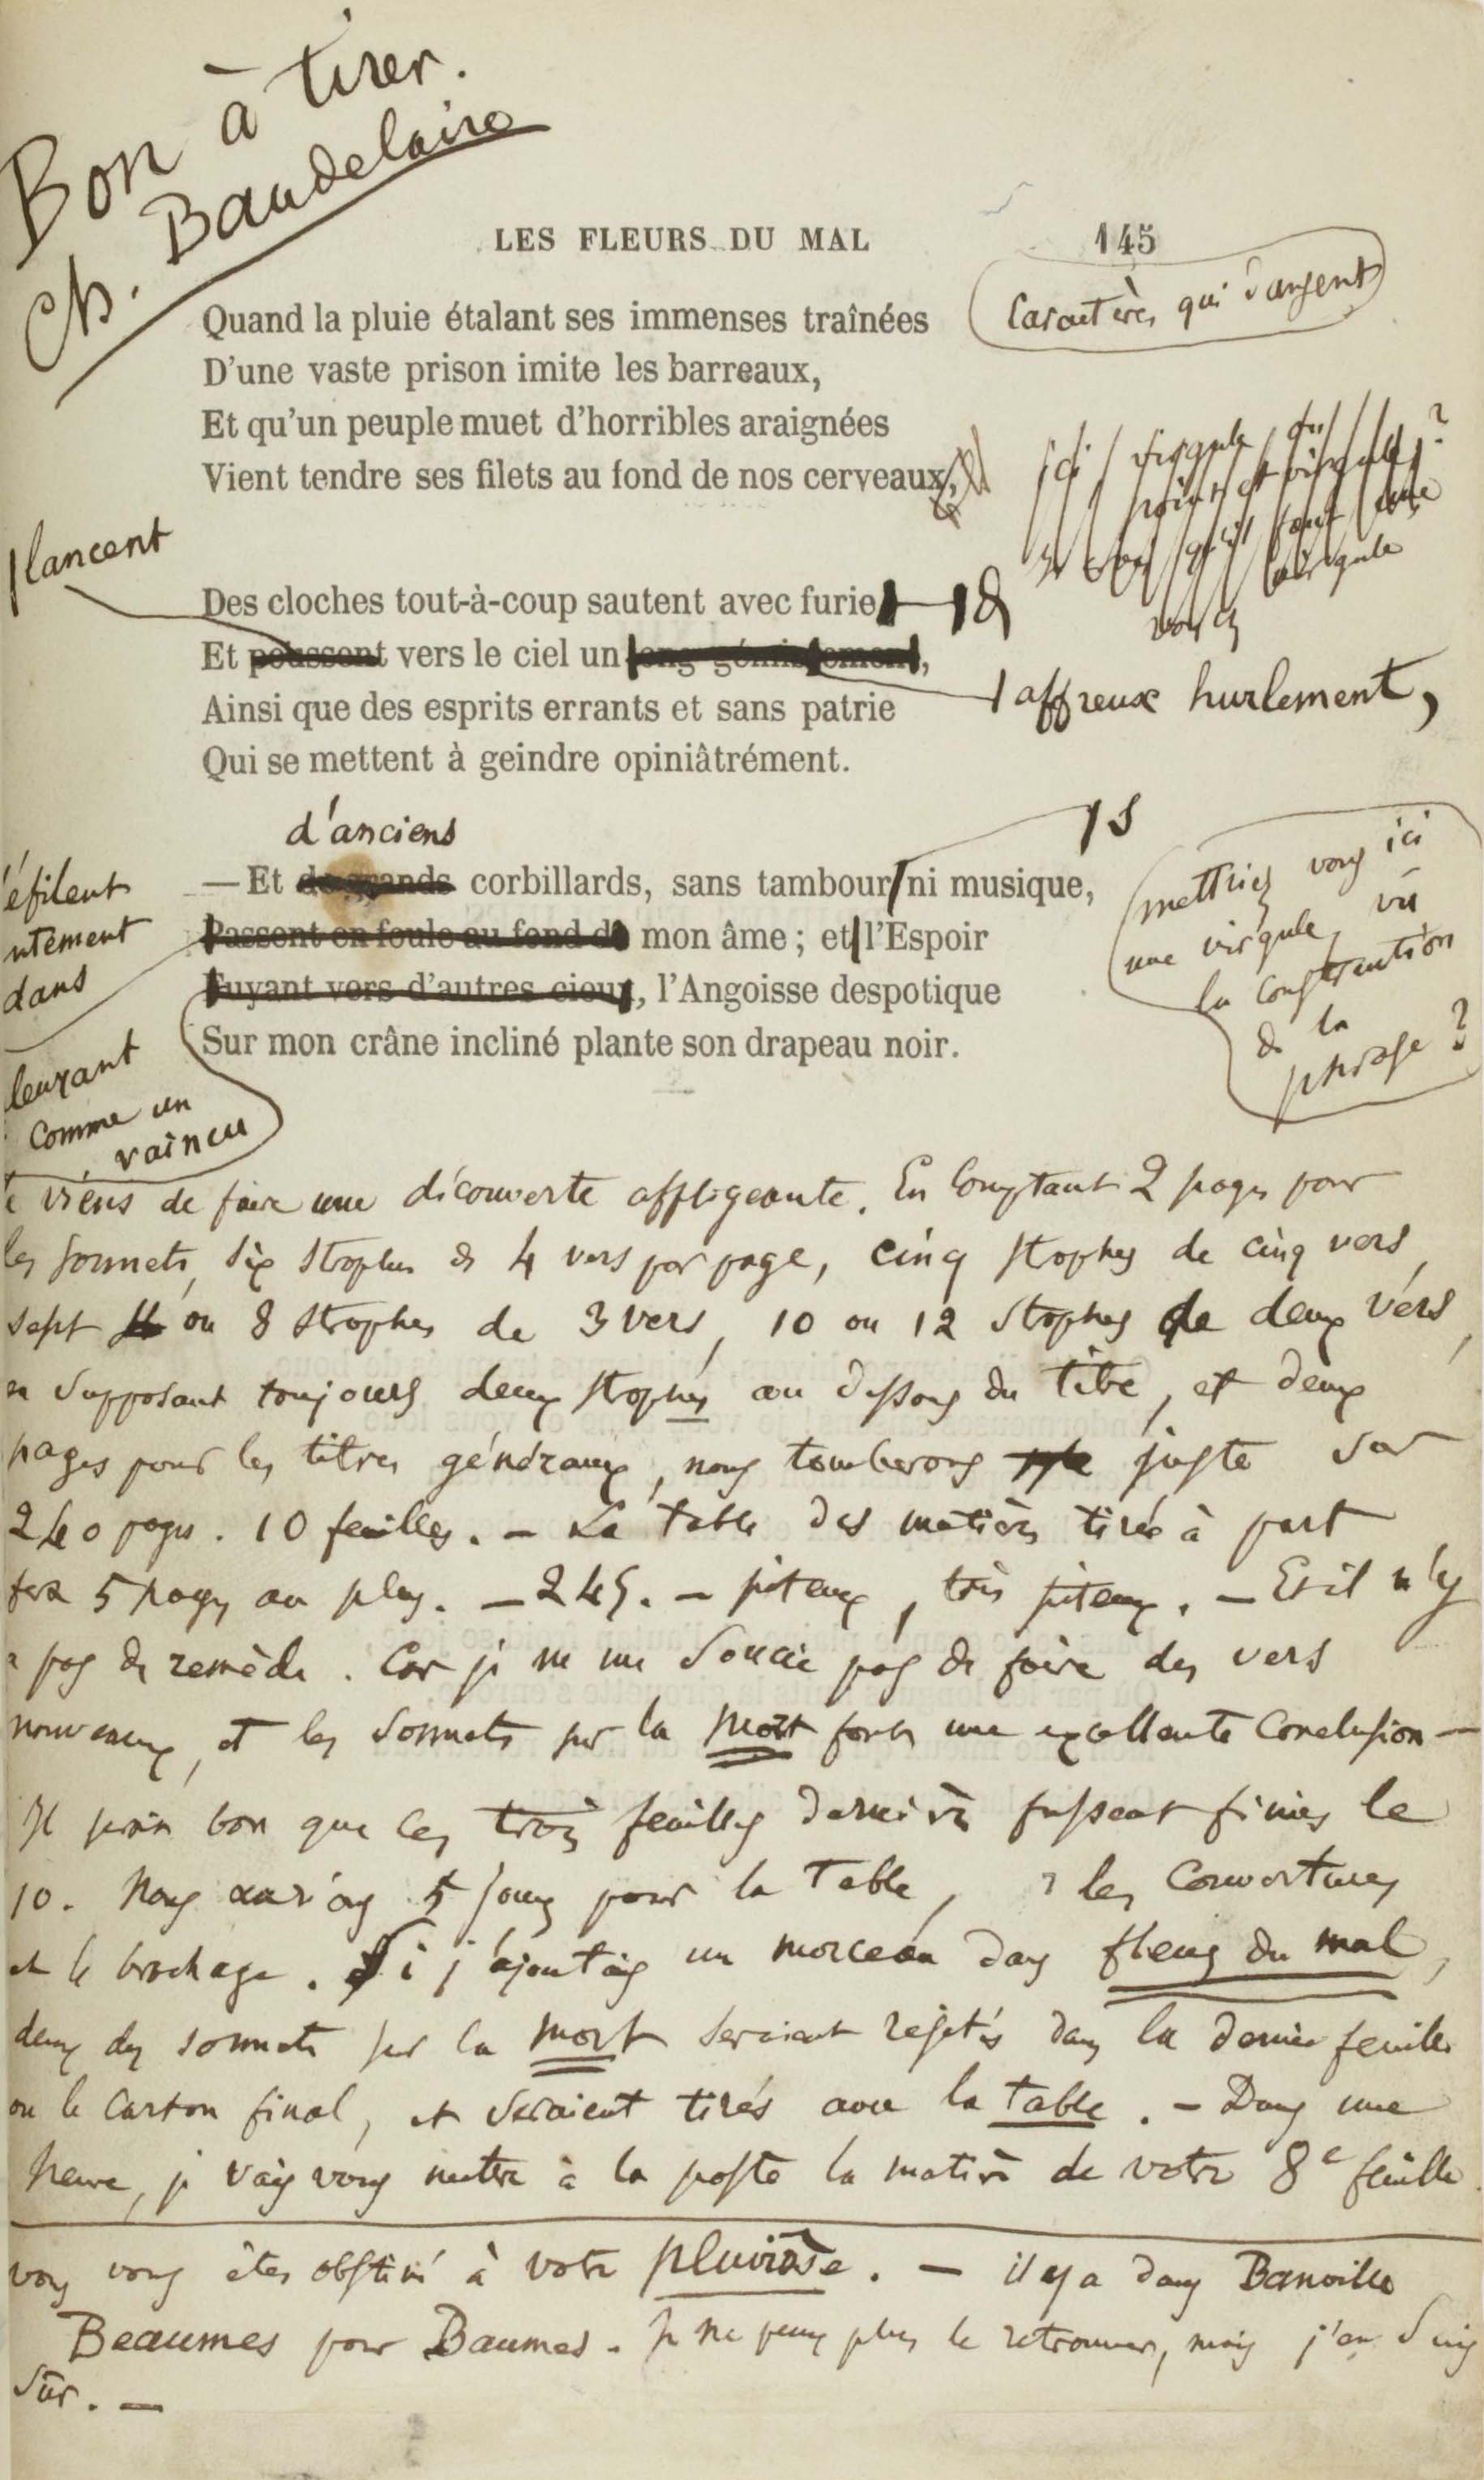 Bon à tirer.
Ch. Baudelaire
LES FLEURS DU MAL 145
Caractères qui dansent
Quand la pluie étalant ses immenses traînées
D'une vaste prison imite les barreaux,
Et qu'un peuple muet d'horribles araignées
Vient tendre ses filets au fond de nos cerveaux,
ici virgule ou
point et virgule?
je crois qu'il faut une
virgule
lancent
Des cloches tout-à-coup sautent avec furie
Et poussent vers le ciel un long gémissement,
affreux hurlement,
Ainsi que des esprits errants et sans patrie
Qui se mettent à geindre opiniâtrément.
d'anciens
s
— Et de grands corbillards, sans tambour ni musique,
Passent en foule au fond de mon âme; et l'Espoir
Fuyant vers d'autres cieux, l'Angoisse despotique
Sur mon crâne incliné plante son drapeau noir.
éfilent
ntement
dans
leurant
comme un
vaincu
mettriez vous ici
une virgule, vu
la construction
de la
phrase?
e viens de faire une découverte affligeante. En comptant 2 pages pour
les sonnets, six strophes de 4 vers par page, cinq strophes de cinq vers,
sept ou 8 strophes de 3 vers, 10 ou 12 strophes de deux vers,
en supposant toujours deux strophes au dessous du titre, et deux
pages pour les titres généraux, nous tomberons juste sur
240 pages. 10 feuilles. — La table des matières tirée à part
fera 5 pages au plus. — 245. — piteux, très piteux. — Et il n'y
a pas de remède. Car je ne me soucie pas de faire des vers
nouveaux, et les sonnets sur la Mort font une excellente conclusion —
Il serait bon que ces trois feuilles dernières fussent finies le
10. Nous aurions 5 jours pour la Table, les couvertures
et le brochage. Si j'ajoutais un morceau dans fleurs du mal,
deux des sonnets sur la mort seraient rejetés dans la dernière feuille
ou le carton final, et seraient tirés avec la table. — Dans une
heure, je vais vous mettre à la poste la matière de votre 8e feuille.
vous vous êtes obstiné à votre pluviôse. — il y a dans Banville
Beaumes pour Baumes. Je ne peux plus le retrouver, mais j'en suis
sûr. —